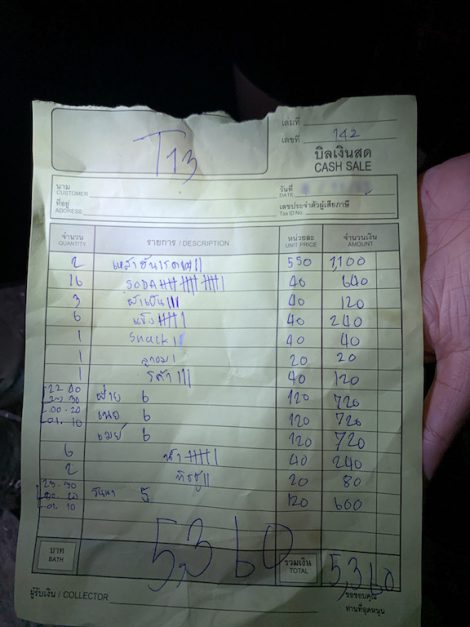 T13
เล่มที่
เลขที่ 142
บิลเงินสด
CASH SALE
นาม
CUSTOMER
วันที่
DATE
ที่อยู่
ADDRESS
เลขประจำตัวผู้เสียภาษี
Tax ID No.
จำนวน รายการ / DESCRIPTION หน่วยละ จำนวนเงิน
QUANTITY UNIT PRICE AMOUNT
2 550 1,100
16 SODA 40 640
3 ผ้าเย็น 40 120
6 แข็ง 40 240
1 Snack 40 40
1 ลูกอม 20 20
1 โค้ก 40 120
22.00
6 120 720
00.20
เนย 6 120 720
01.10
เมย์ 6 120 720
6 น้ำ 40 240
2 ทิชชู่ 20 80
5 120 600
01.10
5,360
บาท
BATH
รวมเงิน
TOTAL
5,360
ผู้รับเงิน / COLLECTOR
ขอขอบคุณ
ท่านที่อุดหนุน